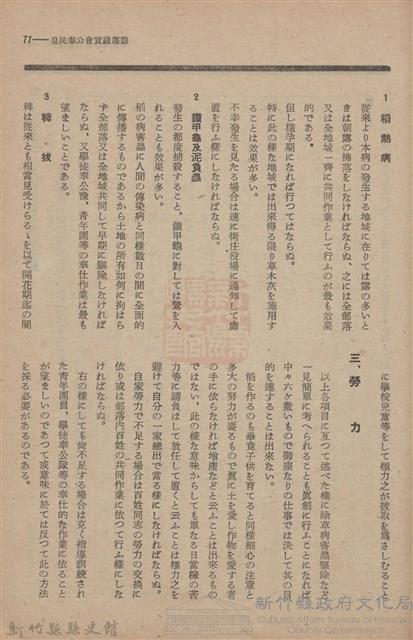 77——皇民奉公會實踐運動
1 稻熱病
從來より本病の發生する地域に在りては露の多いと
きは朝露の拂落をしなければならぬ、之には全部落
又は全地域一齊に共同作業として行ふのが最も效果
的である。
但し穗孕期になれば行つてはならぬ。
特に此の樣な地域では出來得る限り草木灰を施用す
ることは效果が多い。
不幸發生を見たる場合は速に街庄役場に通知して處
置を行ふ樣にしなければならぬ。
2 鐵甲龜及泥負蟲
發生の都度捕殺すること、鐵甲龜に對しては鶩を入
れることも效果が多い。
稻の病害蟲は人間の傳染病と同樣數日の間に全面的
に傳播するものであるから土地の所有如何に拘はら
ず全部落又は全地域共同して早期に驅除しなければ
ならぬ、又學徒奉公隊、青年團等の奉仕作業は最も
望ましいことである。
3 稗拔
稗は從來とも相當見受けらるゝを以て開花期迄の間
に學校兒童等をして極力之が拔取を爲さしむること
三、勞力
以上各項目に亙つて述べた樣に除草病害蟲驅除など
一見簡單に考へられることも眞劍に行ふことになれば
中々六ケ敷いもので御座なりの仕事では決して其の目
的を達することは出來ない。
稻を作るのも畢竟子供を育てると同樣細心の注意と
多大の努力が要るもので眞に土を愛し作物を愛する者
の手に依らなければ增產などと云ふことは出來るもの
ではない、此の樣な意味からしても單なる日當稼の苦
力等に請負はして放任して置くと云ふことは極力之を
避けて自分の一家總出で當る樣にしなければならぬ。
自家勞力で不足する場合は百姓同志の勞力の交換に
依り或は部落內百姓の共同作業に依つて行ふ樣にしな
ければならぬ。
右の樣にしても尙不足する場合は克く指導訓練され
た青年團員、學徒奉公隊等の奉仕的な作業に依ること
が望ましいのであつて或意味に於ては反つて此の方法
を採る必要があるのである。
新竹縣政府文化局
Cultural Affairs Bureau of Hsinchu
County Government
新竹縣縣史館